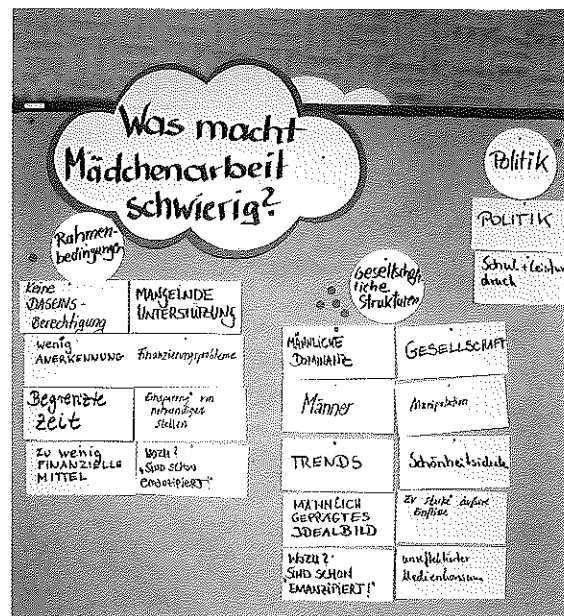 Was macht
Mädchenarbeit
schwierig?
Rahmen-
bedingungen
Keine
DASEINS-
Berechtigung
MANGELNDE
UNTERSTÜTZUNG
wenig
ANERKENNUNG
Finanzierungsprobleme
Begrenzte
Zeit
Einsparung von
notwendigen
Stellen
Zu wenig
FINANZIELLE
MITTEL
WOZU?
„SIND SCHON
EMANZIPIERT!"
Gesellschaft-
liche
Strukturen
MÄNNLICHE
DOMINANZ
GESELLSCHAFT
Männer
Manipulation
TRENDS
Schönheitsideale
MÄNNLICH
GEPRÄGTES
IDEALBILD
Zu starke äußere
Einflüsse
WOZU?
„SIND SCHON
EMANZIPIERT!"
unreflektierter
Medienkonsum
Politik
POLITIK
Schul + Leistungs
druck